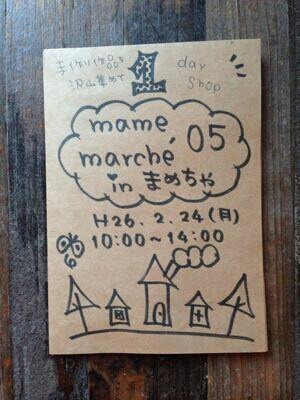 手作り作品を
沢山集めて
1 day
Shop
mame
marché '05
in まめちゃ
H26.2.24(月)
10:00~14:00